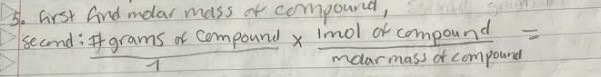 5. first find molar mass of compound,
second: # grams of compound x 1mol of compound =
1 molar mass of compound